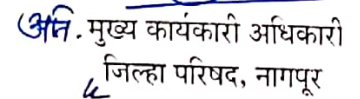 अति. मुख्य कार्यकारी अधिकारी
जिल्हा परिषद, नागपूर